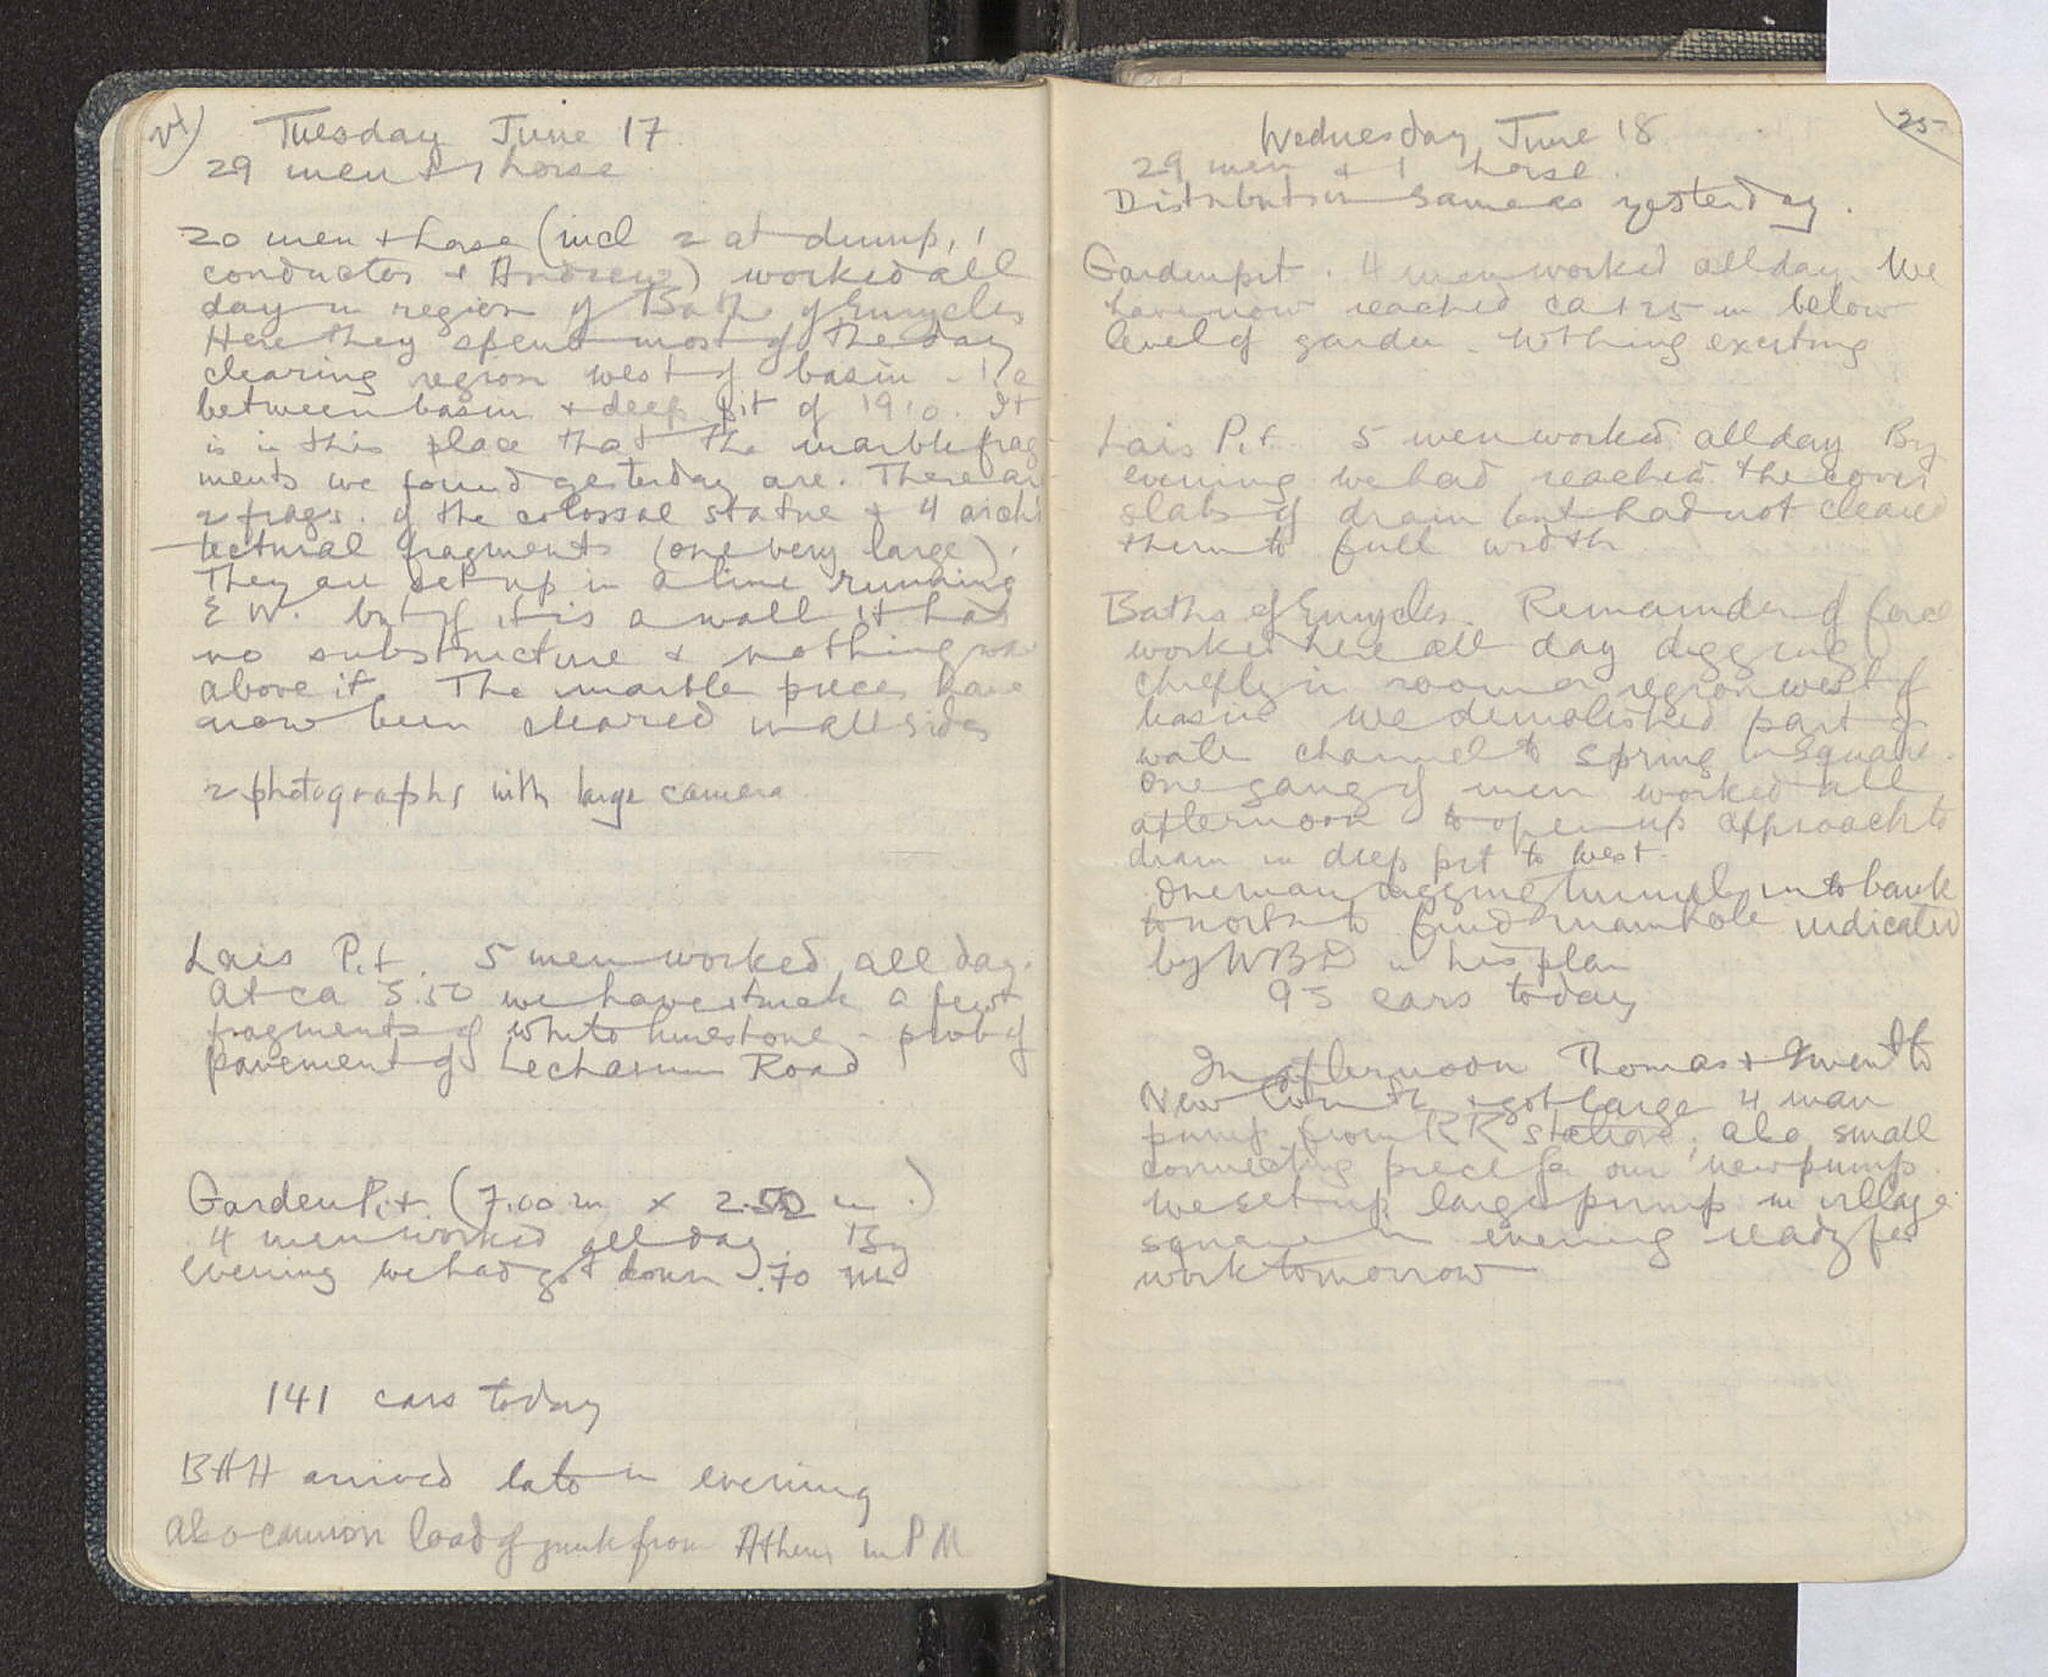 24)
Tuesday June 17
29 men & 1 horse
20 men & horse (incl 2 at dump, 1
conductor & Andreas) worked all
day in region of Bath of Eurycles
Here they spent most of the day
clearing region west of basin - i.e
between basin & deep pit of 1910. It
is in this place that the marble frag
ments we found yesterday are. There are
2 frags. of the colossal statue & 4 archi
tectural fragments (one very large).
They are set up in a line running
E W. but if it is a wall it has
no substructure & nothing was
above it. The marble pieces have
now been cleared on all sides
2 photographs with large camera
Lais Pit. 5 men worked all day.
At ca 5.50 we have struck a few
fragments of white limestone - prob of
pavement of Lechaeum Road
Garden Pit. (7.00 m x 2.50 m.)
4 men worked all day. By
evening we had got down .70 m
141 cars today
BHH arrived late in evening
Also camion load of junk from Athens in PM
25
Wednesday June 18
29 men & 1 horse.
Distribution same as yesterday.
Garden pit. 4 men worked all day. We
have now reached ca 1.25 m below
level of garden. Nothing exciting
Lais Pit. 5 men worked all day By
evening we had reached the cover
slabs of drain but had not cleared
them to full width
Baths of Eurycles. Remainder of force
worked here all day digging
chiefly in room or region west of
basin We demolished part of
water channel to spring in square.
One gang of men worked all
afternoon to open up approach to
drain in deep pit to west.
One man digging tunnel into bank
to north to find manhole indicated
by WBD in his plan
95 cars today
In afternoon Thomas & I went to
New Corinth & got large 4 man
pump from RR station, also small
connecting piece for our new pump.
We set up large pump in village
square in evening ready for
work tomorrow